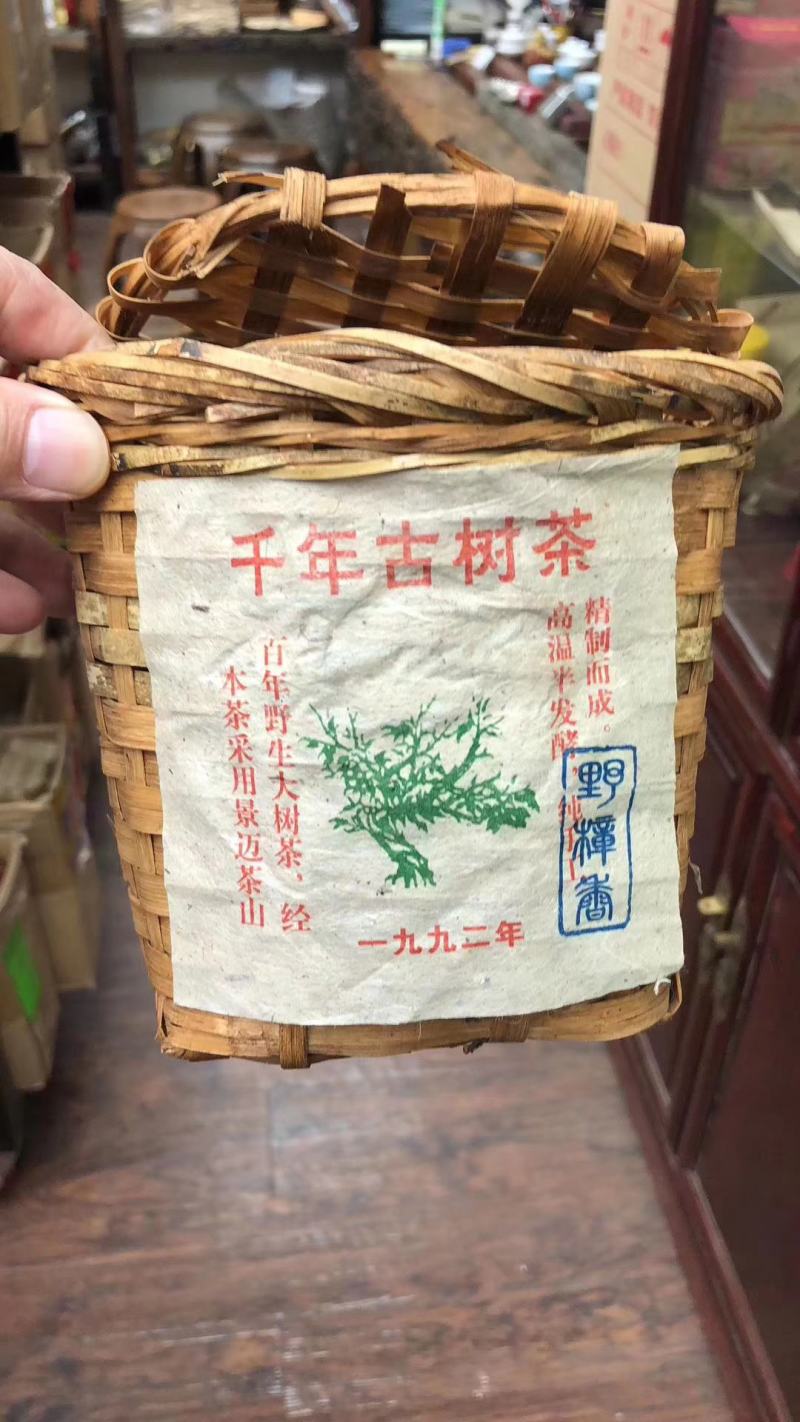 千年古树茶
本茶采用景迈茶山
百年野生大树茶，经
高温半发酵，纯手工
精制而成。
野樟香
一九九二年